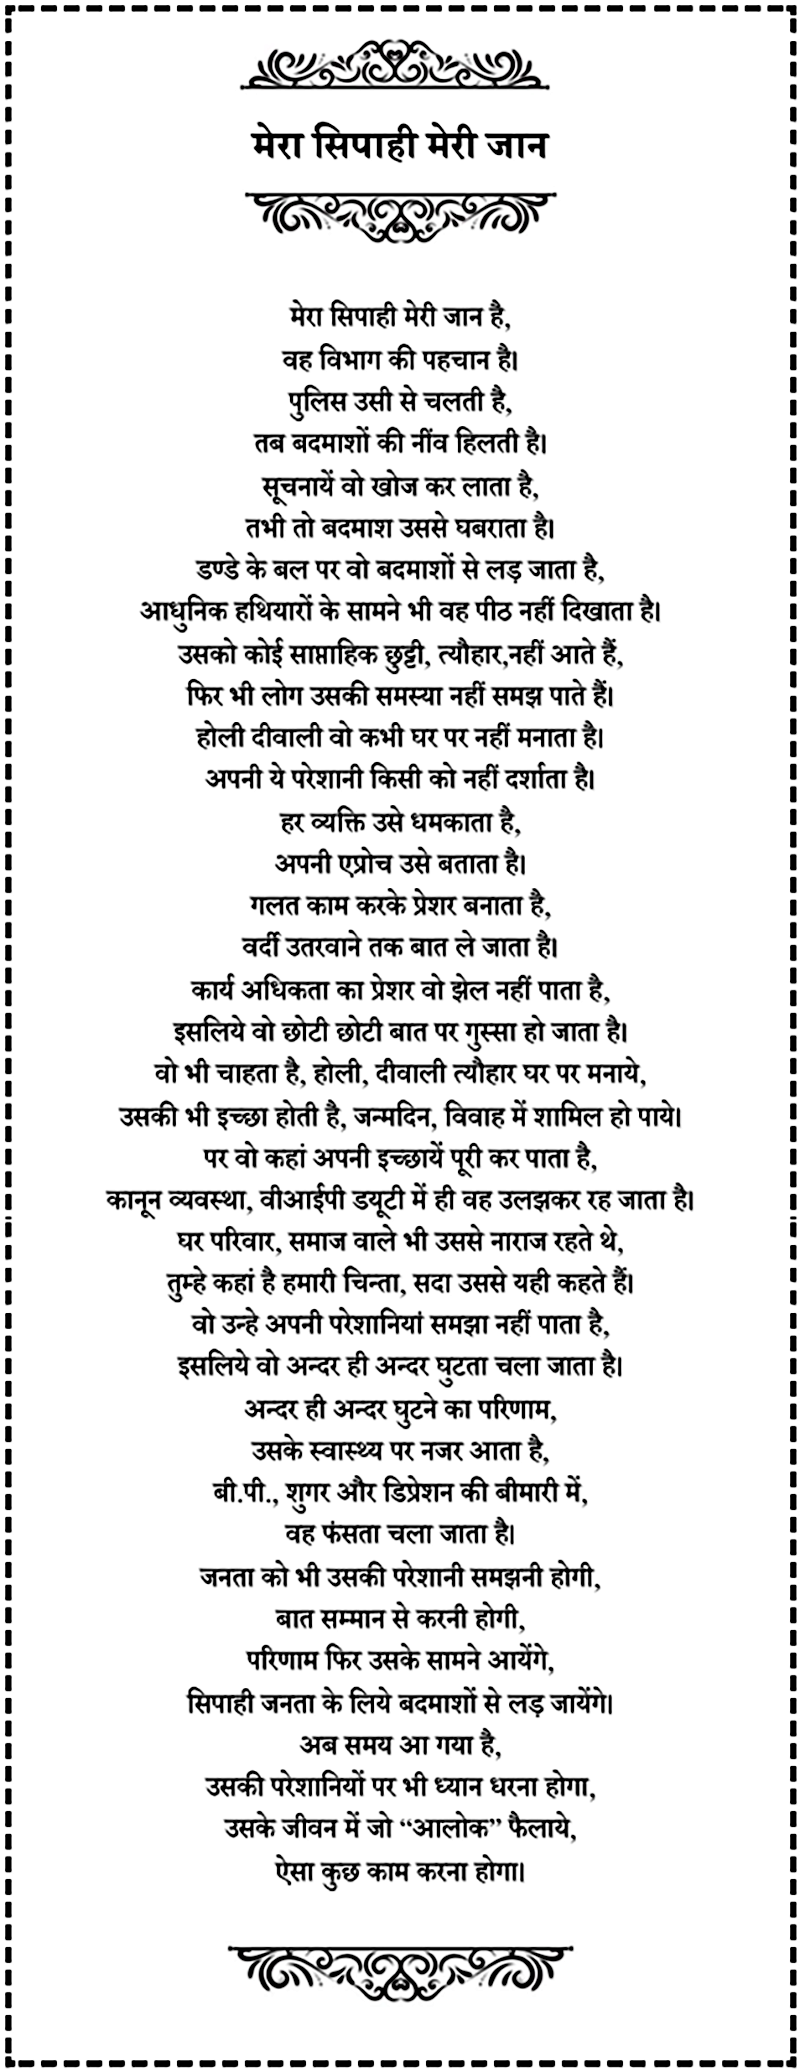 मेरा सिपाही मेरी जान
मेरा सिपाही मेरी जान है,
वह विभाग की पहचान है।
पुलिस उसी से चलती है,
तब बदमाशों की नींव हिलती है।
सूचनायें वो खोज कर लाता है,
तभी तो बदमाश उससे घबराता है।
डण्डे के बल पर वो बदमाशों से लड़ जाता है,
आधुनिक हथियारों के सामने भी वह पीठ नहीं दिखाता है।
उसको कोई साप्ताहिक छुट्टी, त्यौहार,नहीं आते हैं,
फिर भी लोग उसकी समस्या नहीं समझ पाते हैं।
होली दीवाली वो कभी घर पर नहीं मनाता है।
अपनी ये परेशानी किसी को नहीं दर्शाता है।
हर व्यक्ति उसे धमकाता है,
अपनी एप्रोच उसे बताता है।
गलत काम करके प्रेशर बनाता है,
वर्दी उतरवाने तक बात ले जाता है।
कार्य अधिकता का प्रेशर वो झेल नहीं पाता है,
इसलिये वो छोटी छोटी बात पर गुस्सा हो जाता है।
वो भी चाहता है, होली, दीवाली त्यौहार घर पर मनाये,
उसकी भी इच्छा होती है, जन्मदिन, विवाह में शामिल हो पाये।
पर वो कहां अपनी इच्छायें पूरी कर पाता है,
कानून व्यवस्था, वीआईपी डयूटी में ही वह उलझकर रह जाता है।
घर परिवार, समाज वाले भी उससे नाराज रहते थे,
तुम्हे कहां है हमारी चिन्ता, सदा उससे यही कहते हैं।
वो उन्हे अपनी परेशानियां समझा नहीं पाता है,
इसलिये वो अन्दर ही अन्दर घुटता चला जाता है।
अन्दर ही अन्दर घुटने का परिणाम,
उसके स्वास्थ्य पर नजर आता है,
बी.पी., शुगर और डिप्रेशन की बीमारी में,
वह फंसता चला जाता है।
जनता को भी उसकी परेशानी समझनी होगी,
बात सम्मान से करनी होगी,
परिणाम फिर उसके सामने आयेंगे,
सिपाही जनता के लिये बदमाशों से लड़ जायेंगे।
अब समय आ गया है,
उसकी परेशानियों पर भी ध्यान धरना होगा,
उसके जीवन में जो “आलोक” फैलाये,
ऐसा कुछ काम करना होगा।